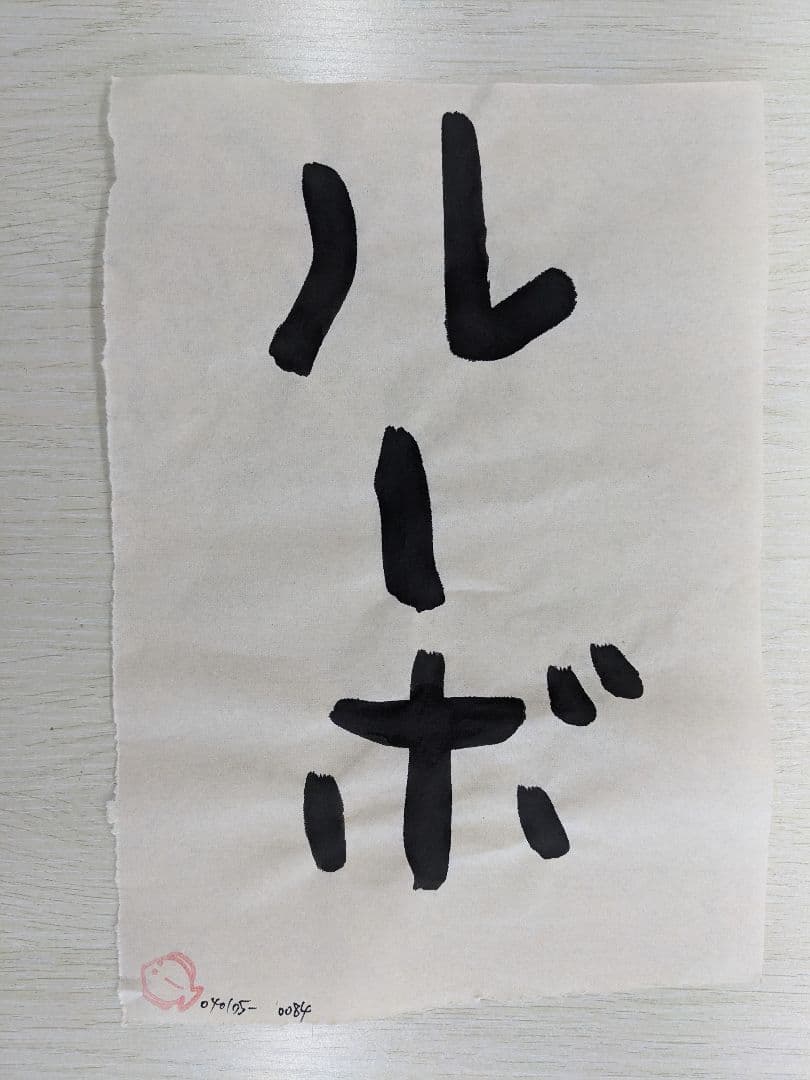 ルーボ
040105- 0084